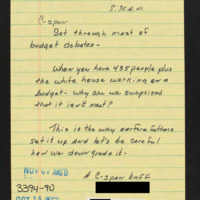 8:30 A.M
C-span
Sat through most of
budget debates -
When you have 435 people plus
the white house working on a
budget - Why are we surprised
that it isn't neat?
This is the way our fore fathers
set it up and let's be careful
how we downgrade it.
A C-span buff
NOV 07
3394-90
OCT 15